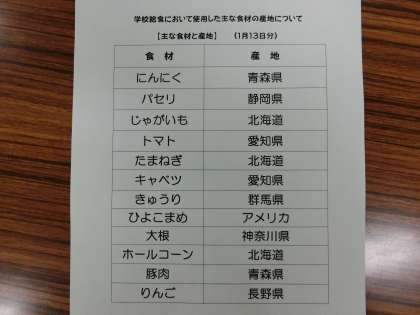 学校給食において使用した主な食材の産地について
【主な食材と産地】 (1月13日分)
食材 産地
にんにく 青森県
パセリ 静岡県
じゃがいも 北海道
トマト 愛知県
たまねぎ 北海道
キャベツ 愛知県
きゅうり 群馬県
ひよこまめ アメリカ
大根 神奈川県
ホールコーン 北海道
豚肉 青森県
りんご 長野県